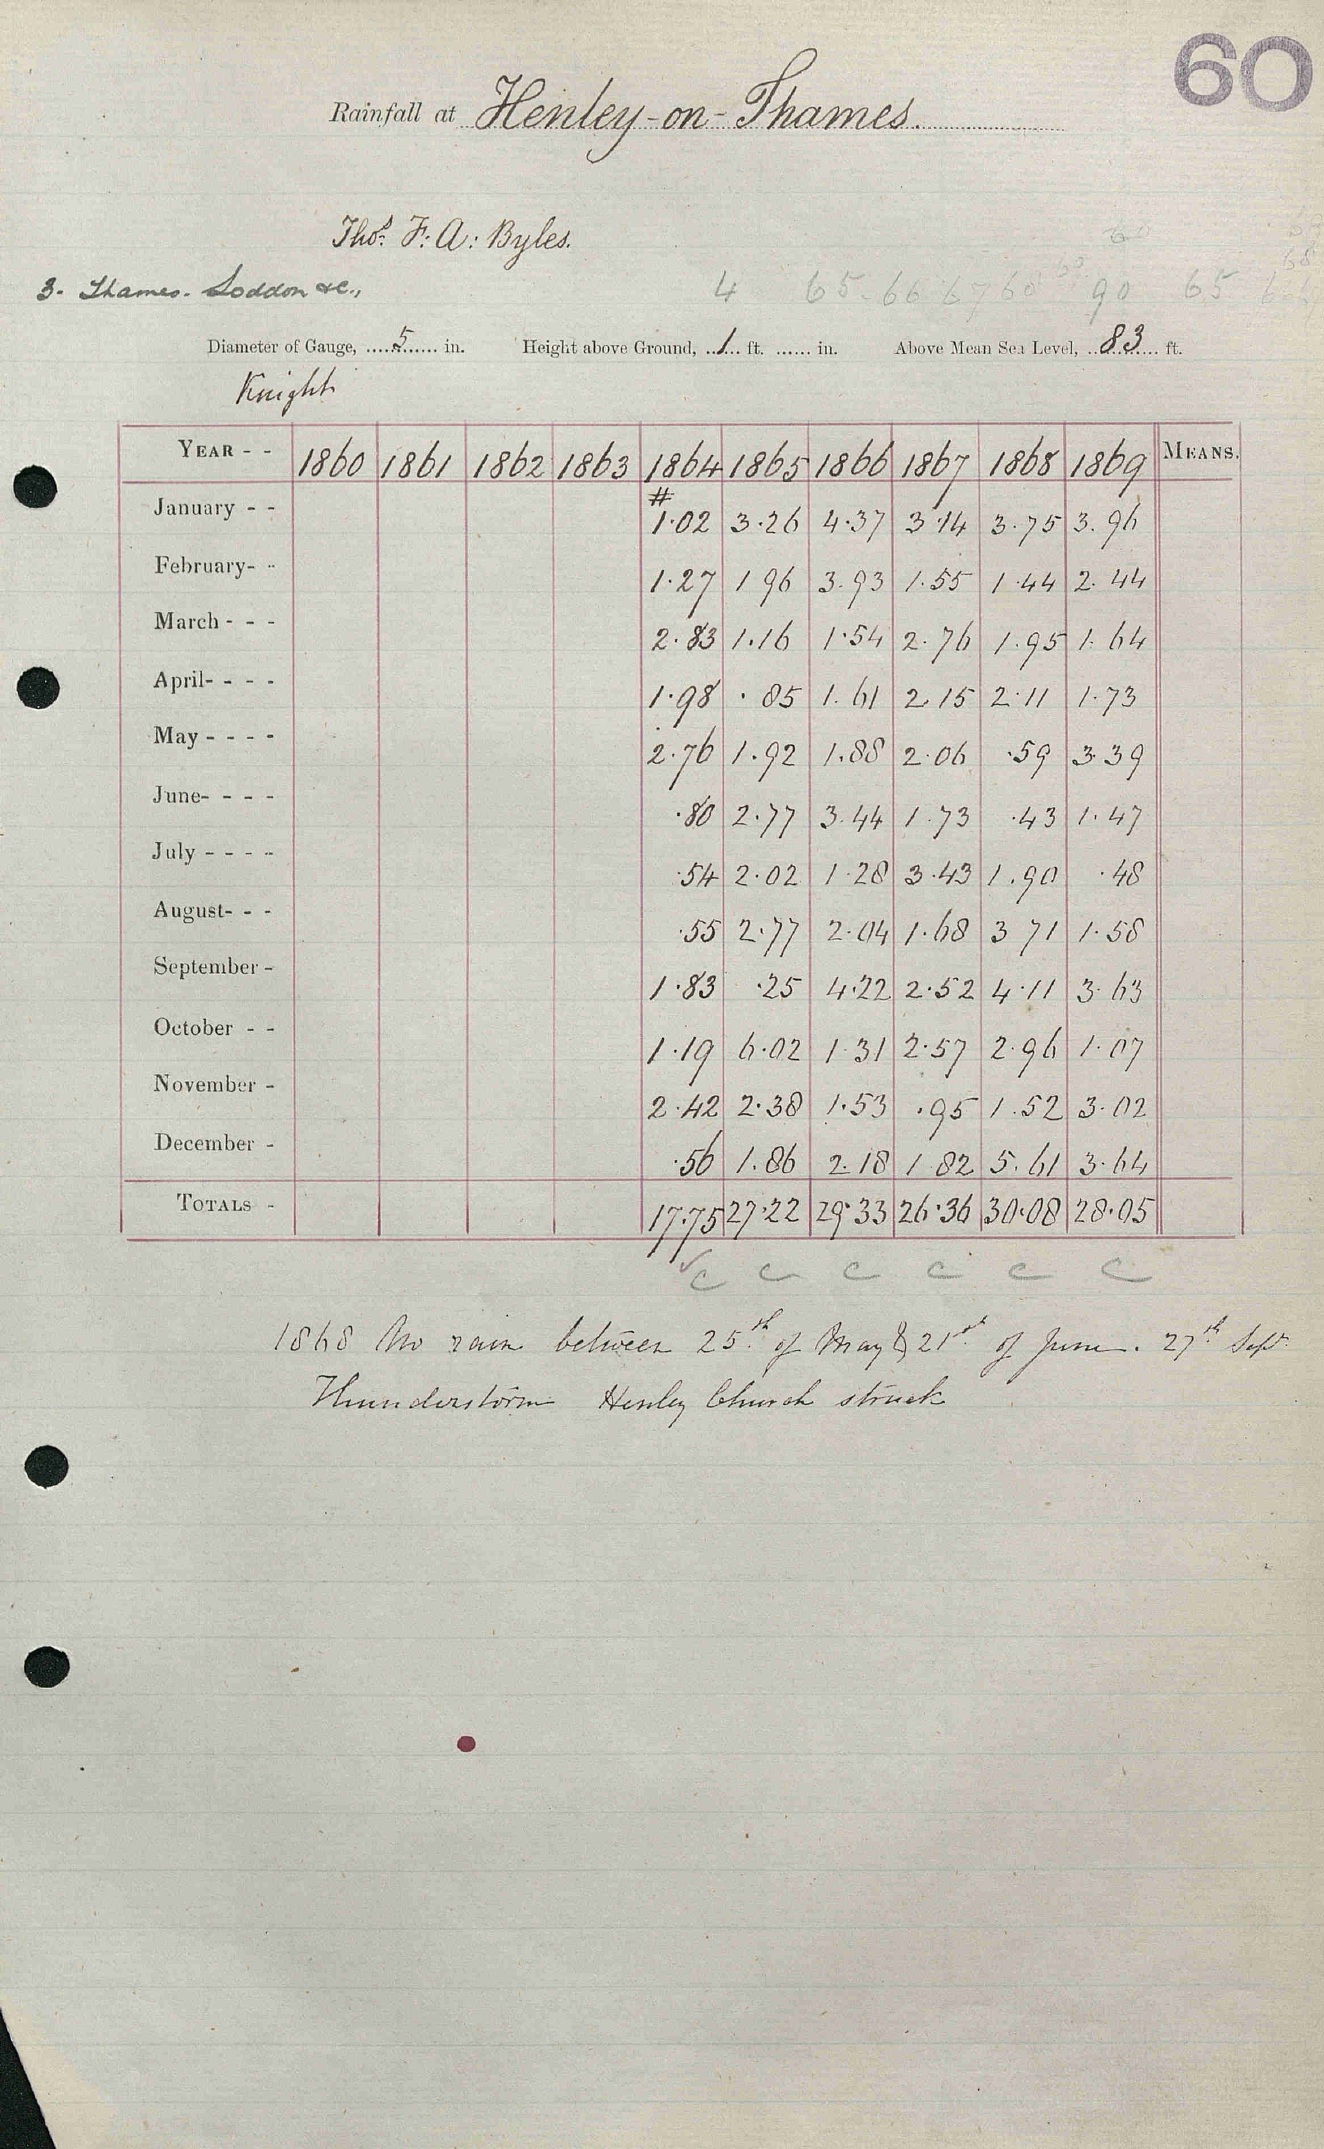 60
Rainfall at Henley-on-Thames.
Thos. F. A: Byles.
3. Thames. Loddon &c.,
4 65 66 67 68 90 65
Diameter of Gauge, 5 in. Height above Ground, 1 ft. in. Above Mean Sea Level, 83 ft.
Knight
YEAR - - 1860 1861 1862 1863 1864 1865 1866 1867 1868 1869 MEANS.
#
January - - 1.02 3.26 4.37 3.14 3.75 3.96
February- - 1.27 1 96 3.93 1.55 1.44 2.44
March - - - 2.83 1.16 1.54 2.76 1.95 1.64
April- - - - 1.98 .85 1.61 2.15 2.11 1.73
May - - - - 2.76 1.92 1.88 2.06 .59 3.39
June- - - - .80 2.77 3.44 1.73 .43 1.47
July - - - - .54 2.02 1.28 3.43 1.90 .48
August- - - .55 2.77 2.04 1.68 3 71 1.58
September - 1.83 .25 4.22 2.52 4.11 3.63
October - - 1.19 6.02 1.31 2.57 2.96 1.07
November - 2.42 2.38 1.53 .95 1.52 3.02
December - .56 1.86 2.18 1 82 5.61 3.64
TOTALS - 17.75 27.22 29.33 26.36 30.08 28.05
c c c c c c
1868 No rain between 25th of May & 21st of June. 27th Sept.
Thunderstorm Henley Church struck